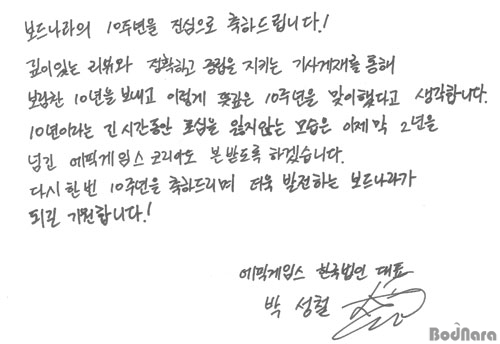 보드나라의 10주년을 진심으로 축하드립니다!
깊이있는 리뷰와 정확하고 중립을 지키는 기사게재를 통해
보람찬 10년을 보내고 이렇게 뜻깊은 10주년을 맞이했다고 생각합니다.
10년이라는 긴 시간동안 초심을 잃지않는 모습은 이제 막 2년을
넘긴 에픽게임스 코리아도 본받도록 하겠습니다.
다시 한번 10주년을 축하드리며 더욱 발전하는 보드나라가
되길 기원합니다!
에픽게임스 한국법인 대표
박 성철
BodNara